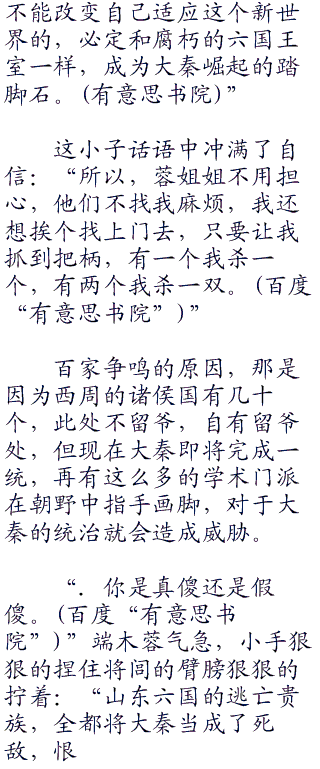 不能改变自己适应这个新世
界的，必定和腐朽的六国王
室一样，成为大秦崛起的踏
脚石。(有意思书院)”
这小子话语中冲满了自
信：“所以，蓉姐姐不用担
心，他们不找我麻烦，我还
想挨个找上门去，只要让我
抓到把柄，有一个我杀一
个，有两个我杀一双。(百度
“有意思书院”)”
百家争鸣的原因，那是
因为西周的诸侯国有几十
个，此处不留爷，自有留爷
处，但现在大秦即将完成一
统，再有这么多的学术门派
在朝野中指手画脚，对于大
秦的统治就会造成威胁。
“．你是真傻还是假
傻。(百度“有意思书
院”)”端木蓉气急，小手狠
狠的捏住将闾的臂膀狠狠的
拧着：“山东六国的逃亡贵
族，全都将大秦当成了死
敌，恨